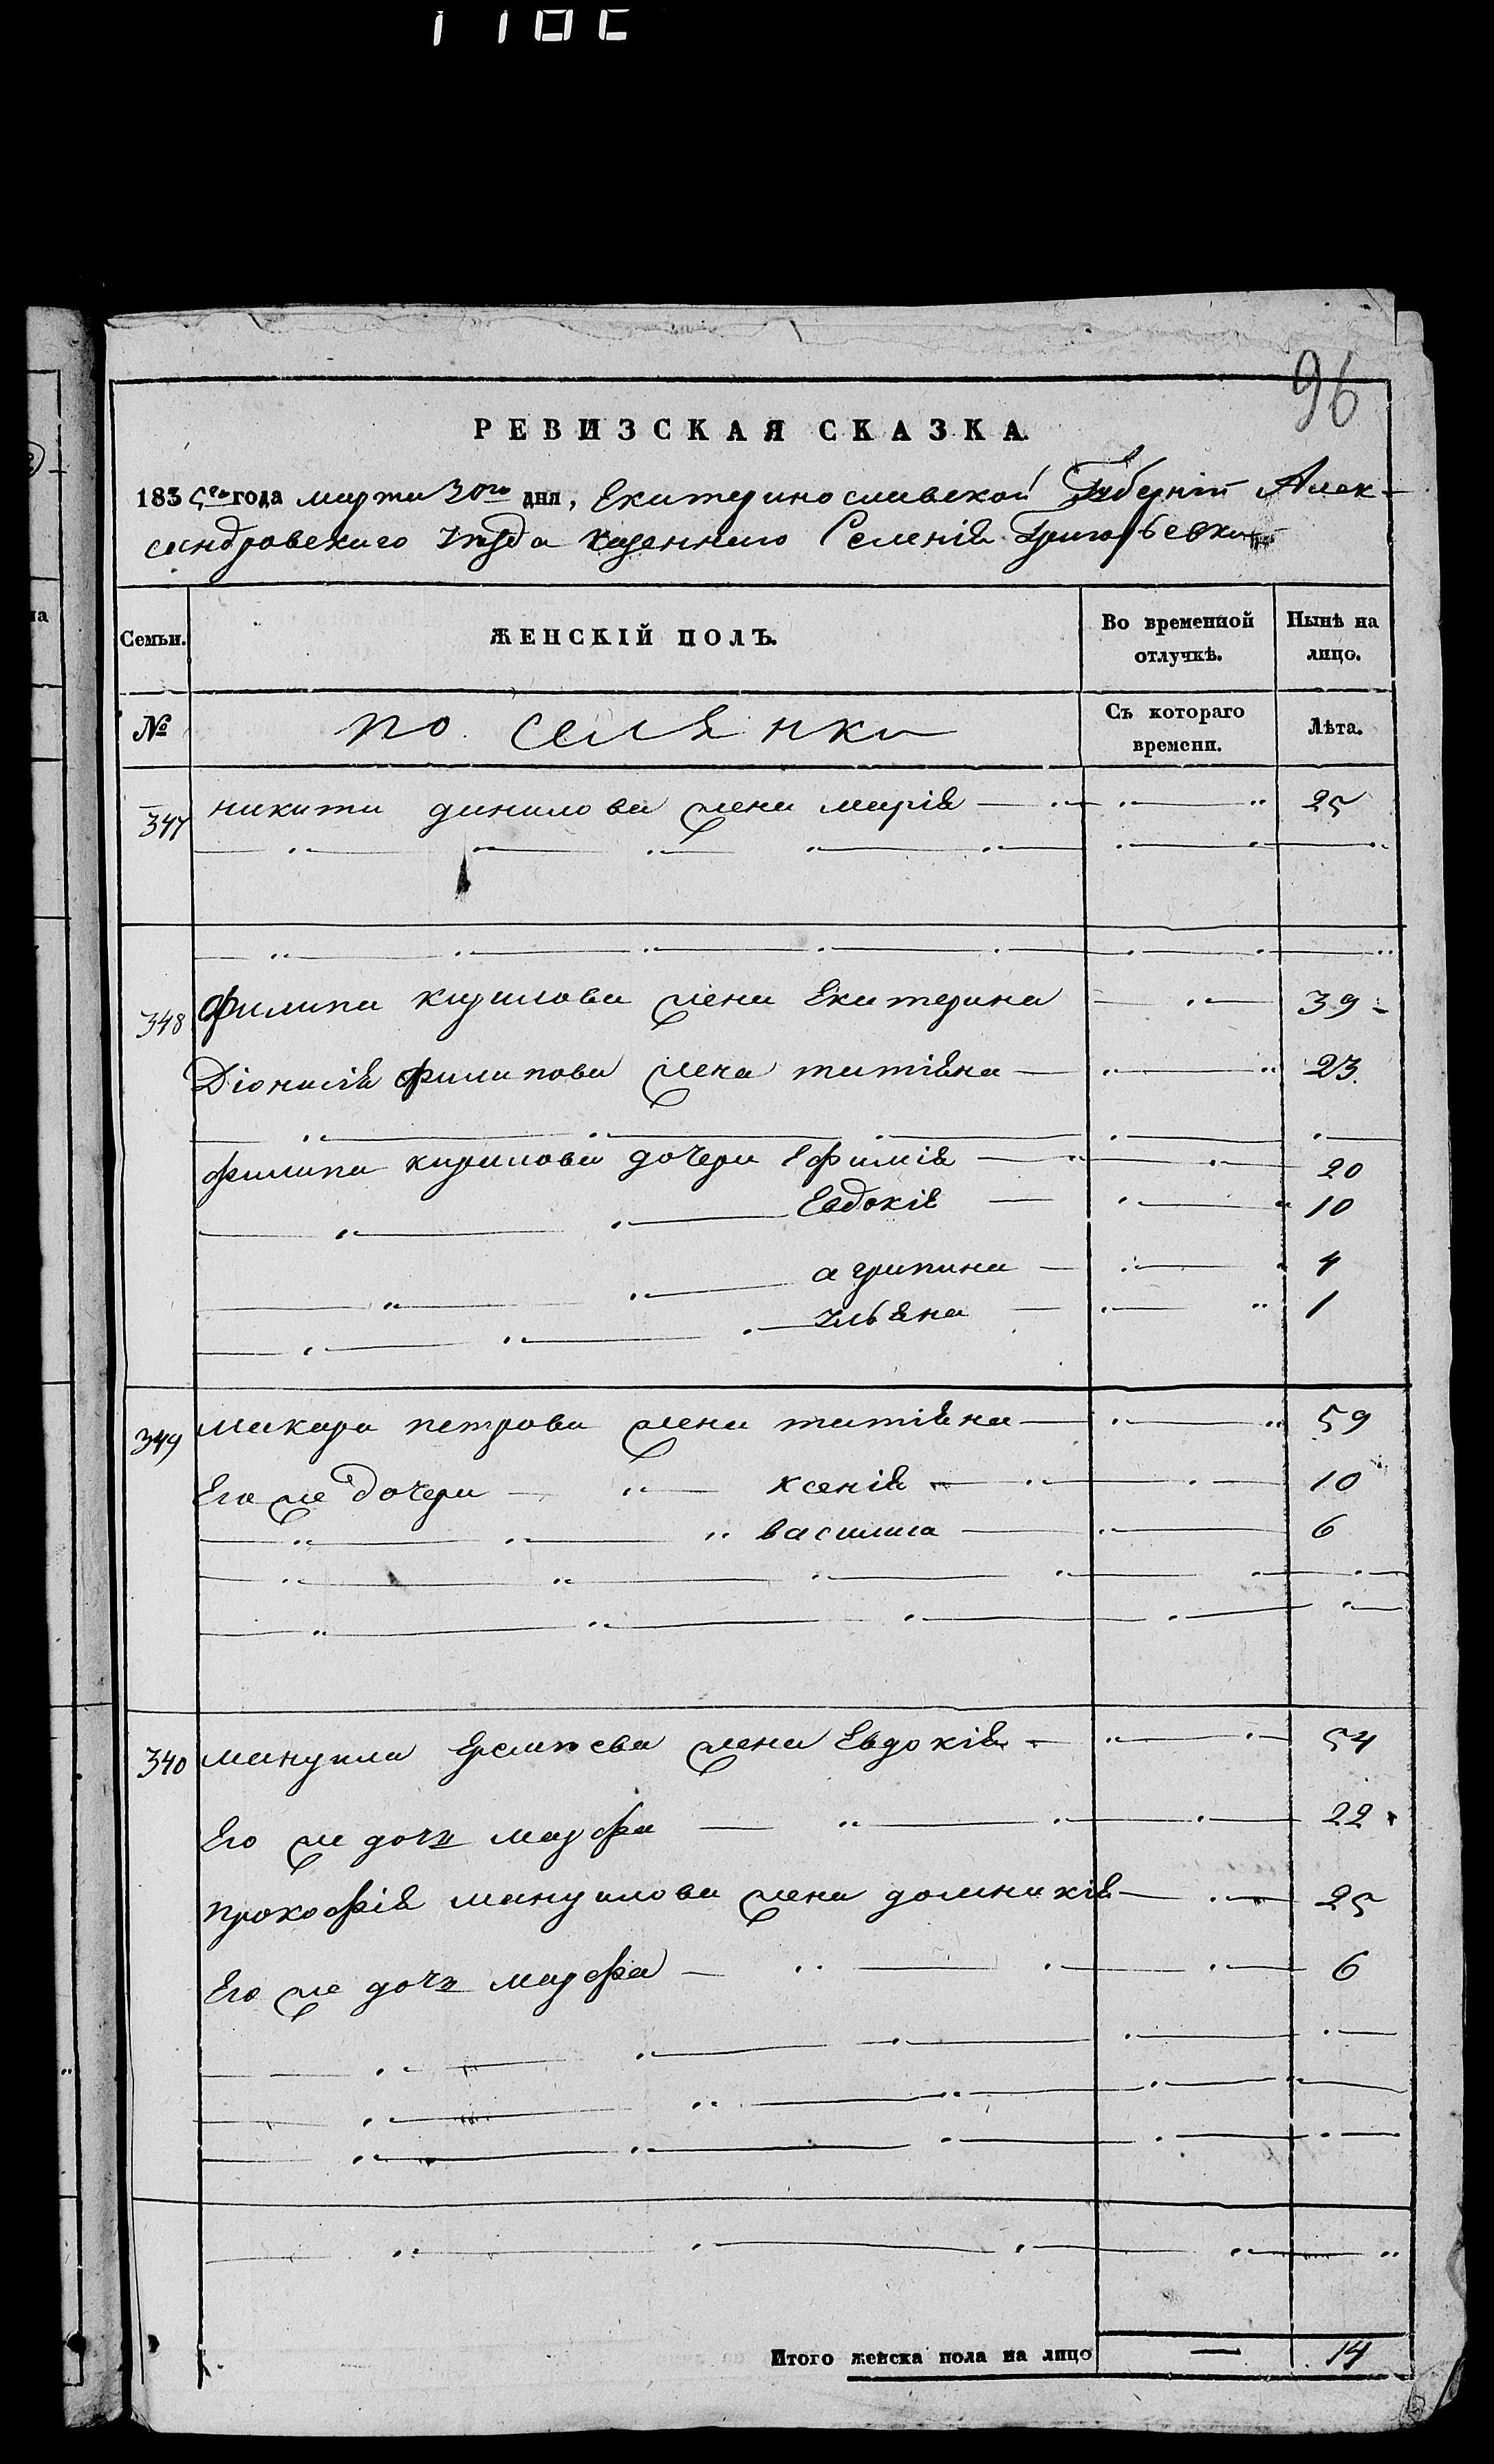 96
РЕВИЗСКАЯ СКАЗКА.
1835го года марта 30го дня, Екатеринославской Губерніи Алек-
сандровскаго уезда казеннаго Селенія Григорьевки
Семьи. ЖЕНСКІЙ ПОЛЪ. Во временной отлучкѣ. Нынѣ на лицо.
№ поселянки Съ котораго времени. Лѣта.
347 никити данилова жена марія 25
348 Филипа кирилова жена Екатерина 39
Діонисія филипова жена татіяна 23
филипа кирилова дочери Ефимія 20
Евдокія 10
агрипина 4
ульяна 1
349 макара петрова жена татіяна 59
Его же дочери ксенія 10
василиса 6
340 мануила жена Евдокія 54
Его же дочь марфа 22
прокофія мануилова жена домникія 25
Его же дочь марфа 6
Итого женска пола на лицо — 14